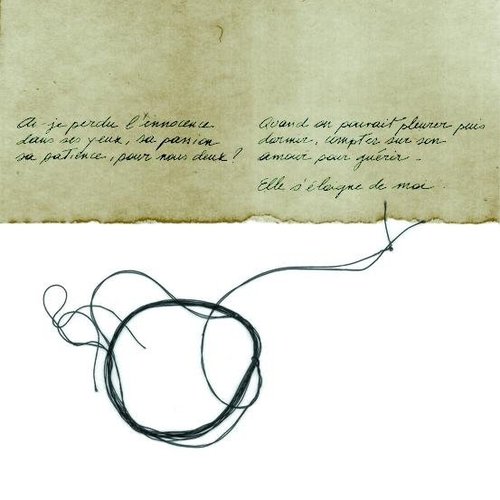 Ai-je perdu l'innocence
dans ses yeux, sa passion
sa patience, pour nous deux ?
Quand on pouvait pleurer puis
dormir, compter sur son
amour pour guérir.
Elle s'éloigne de moi.